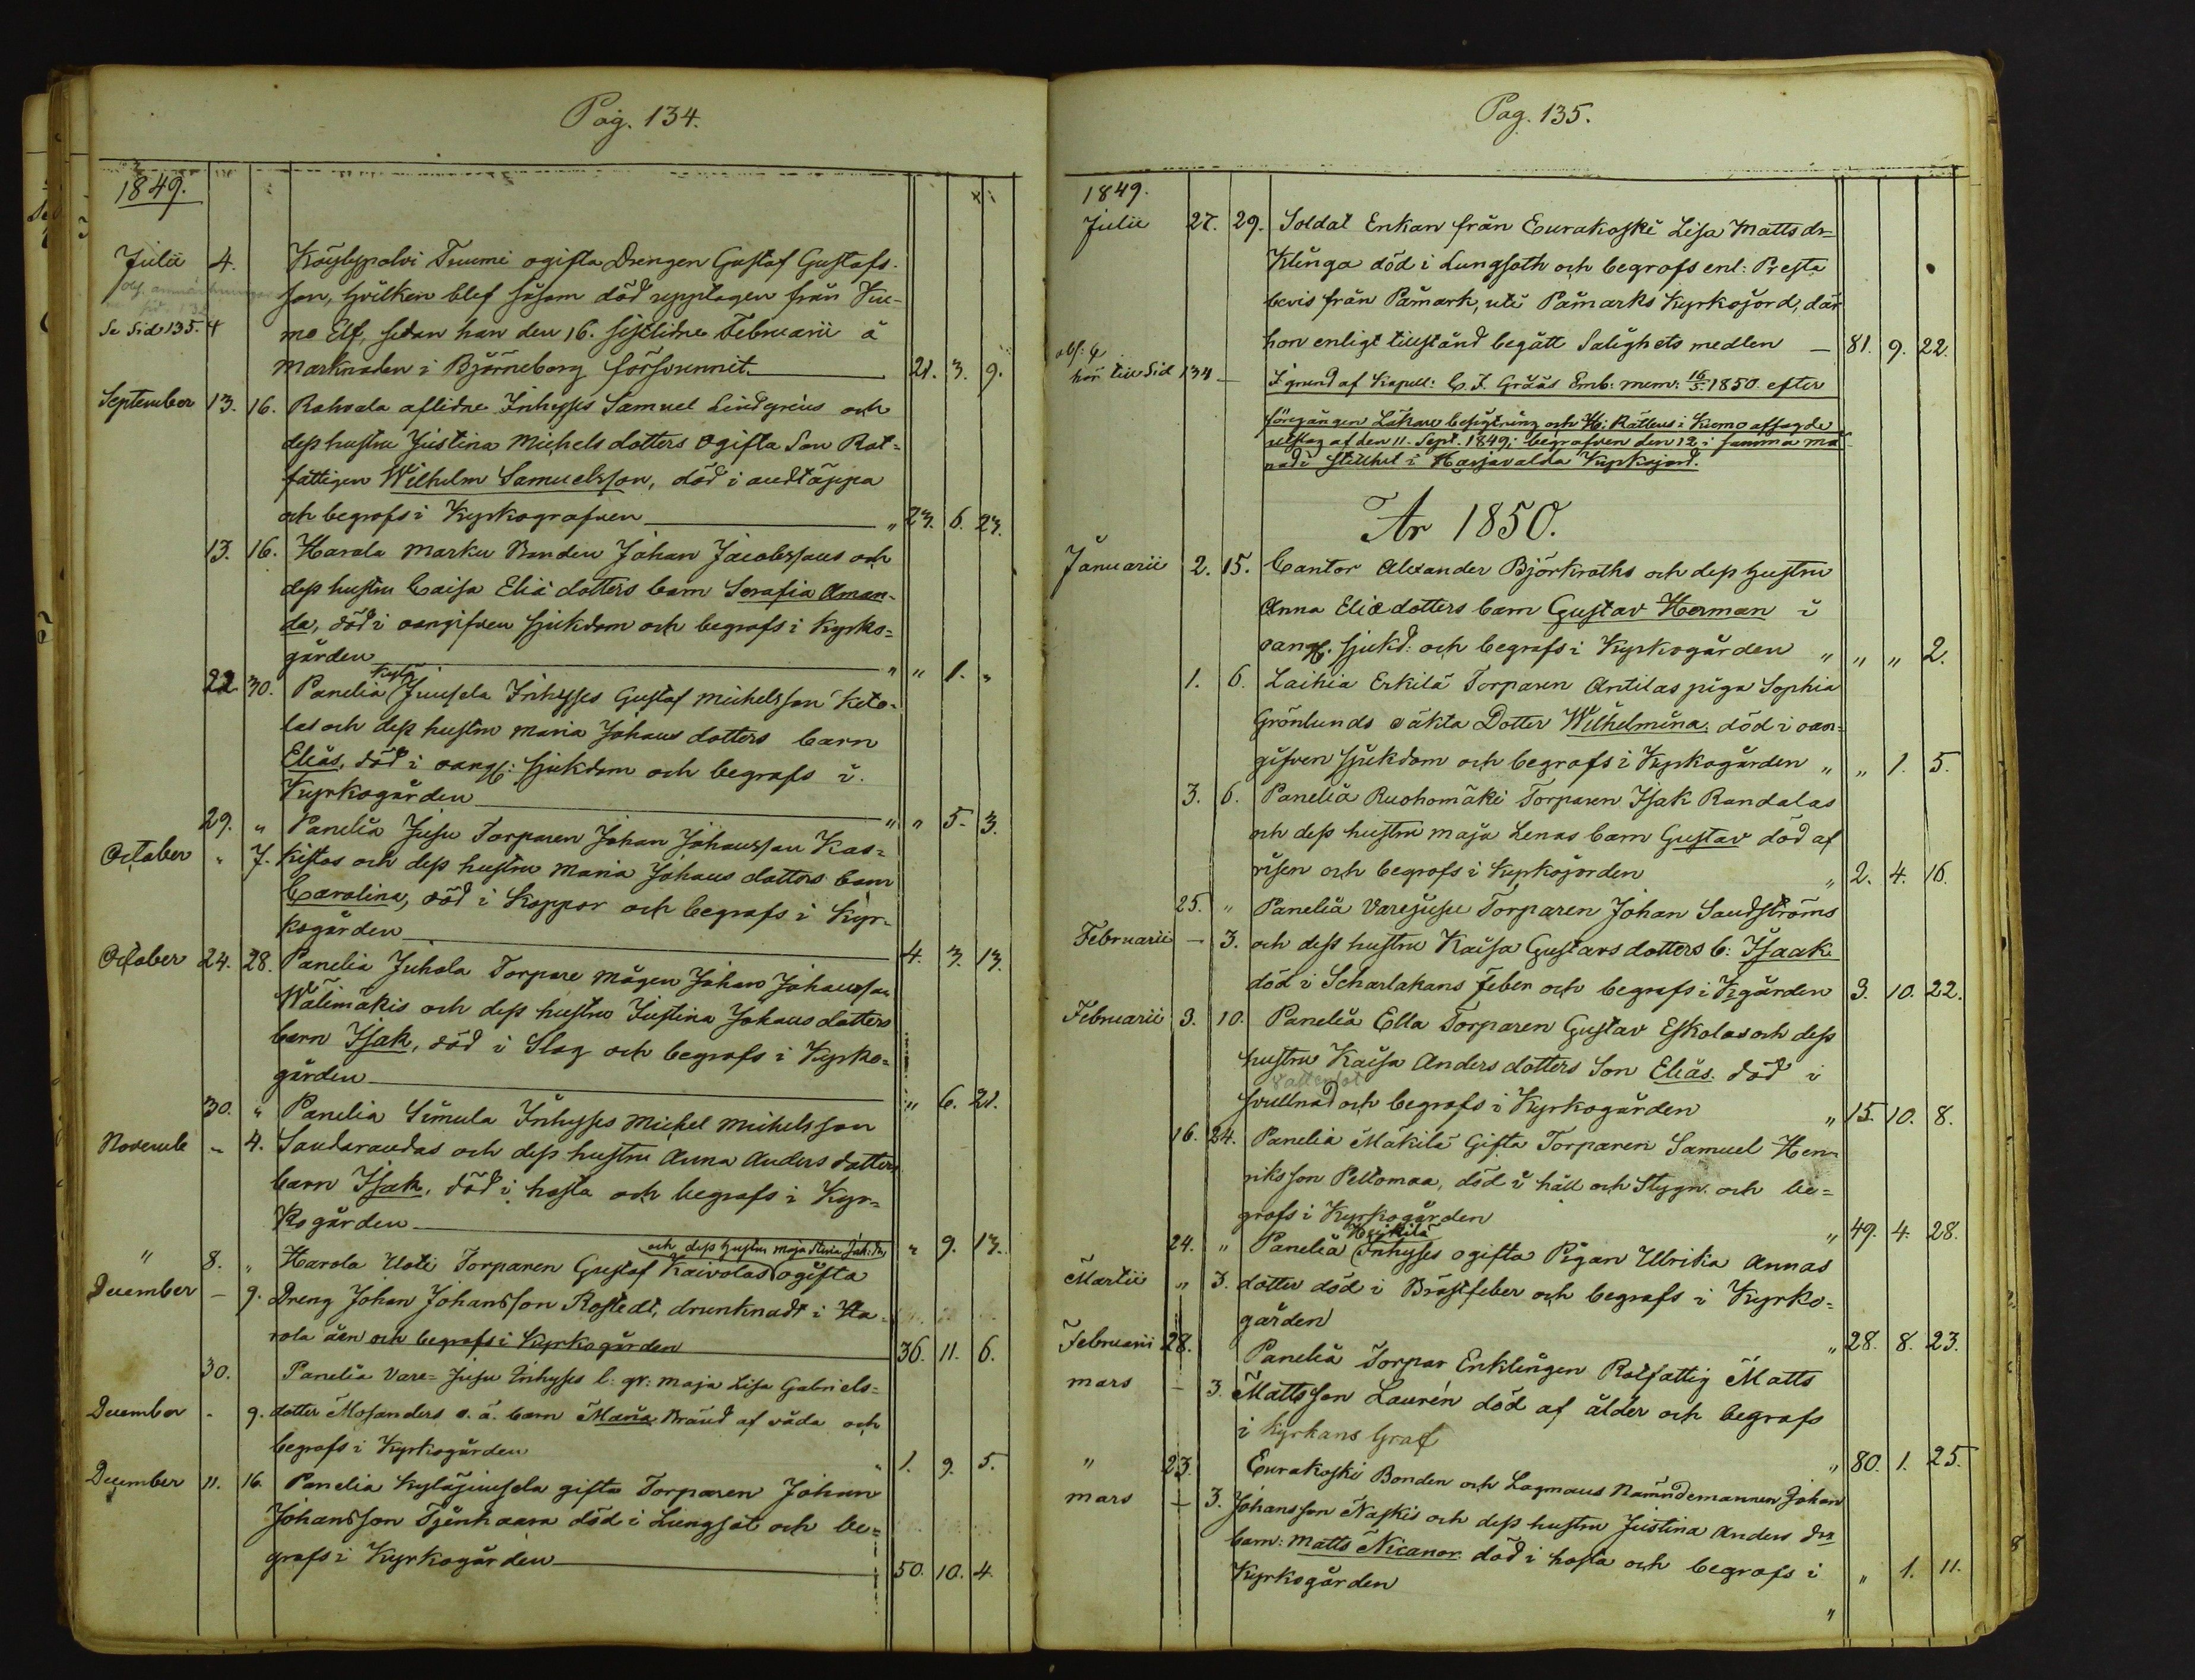 Pag. 134.
1849.
Julii 4. Köylypolvi Tuumi ogifta Drengen Gustaf Gustafs-
son, hvilken blef såsom död upptagen från Ku-
Se Sid 135. 4 mo Elf, sedan han den 16. sistlidne Februarii å
marknaden i Björneborg försvunnit. 21. 3. 9.
September 13. 16. Rahvala aflidne Inhyses Samuel Lindgréns och
dess hustru Justina Michels dotters ogifta Son Rot-
fattigen Wilhelm Samuelsson, död i andtäppa
och begrofs i Kyrkografven " 23. 6. 23.
13. 16. Harola Marku Bonden Johan Jacobssons och
dess hustru Caisa Eliä dotters barn Serafia Aman-
da, död i oangifven sjukdom och begrafs i Kyrko-
gården " " 1. "
22. 30. Panelia Juusela Inhyses Gustaf Michelsson Keto-
las och dess hustru Maria Johans dotters barn
Eliäs, död i oangf: sjukdom och begrafs i
Kyrkogården " " 5. 3.
29. " Panelia Juju Torparen Johan Johansson Kas-
October " 7. kistos och dess hustru Maria Johans dotters barn
Carolina, död i Koppor och begrafs i Kyr-
kogården 4. 3. 13.
October 24. 28. Panelia Juhola Torpare mågen Johan Johansson
Wälimäkis och dess hustru Justina Johans dotters
barn Isak, död i Slag och begrafs i Kyrko-
gården " 6. 21.
30. " Panelia Simula Inhyses Michel Michelsson
Novembr - 4. Sandarandas och dess hustru Anna Anders dotters
barn Isak, död i hosta och begrafs i Kyr-
kogården " 9. 13.
och dess hustru Maja Stina Joh: dr
" 8. " Harola Uoti Torparen Gustaf Kaivolas ogifta
December - 9. Dreng Johan Johansson Rostedt, drunknadt i Ha-
rola åen och begrafs i Kyrkogården 36. 11. 6.
30. Panelia Vare-Juju Inhyses l: qv: Maja Lisa Gabriels-
December - 9. dotter Mosanders o. ä. barn Maria Bränd af våda och
begrafs i Kyrkogården " 1. 9. 5.
December 11. 16. Panelia Kyläjuusela gifta Torparen Johan
Johansson Tjenhaara död i Lungsot och be-
grafs i Kyrkogården 50. 10. 4.
Pag. 135.
1849.
Julii 27. 29. Soldat Enkan från Eurakoski Lisa Matts dr-
Klinga död i Lungsoth och begrafs enl: Presta
bevis från Påmark, uti Påmarks Kyrkojord, där
hon enligt tillstånd begått Salighets medlen 81. 9. 22.
obs: 4
hör till Sid 134 I grund af Kapell: C. J. Grääs Emb: mem: 16/5 1850 efter
föregången Läkare besigtning och H: Rättens i Kumo afsagde
utslag af den 11. Sept. 1849; begrafven den 12 i samma må-
nad i stillhet i Harjavalda Kyrkojord.
År 1850.
Januarii 2. 15. Cantor Alexander Björkroths och dess hustru
Anna Eliædotters barn Gustav Herman i
oangf. sjukd: och begrafs i Kyrkogården " " " 2.
1. 6. Laihia Erkilä Torparen Antilas piga Sophia
Grönlunds oäkta Dotter Wilhelmina död i oan-
gifven sjukdom och begrafs i Kyrkogården " " 1. 5.
3. 6. Panelia Ruohomäki Torparen Isak Randalas
och dess hustru Maja Lenas barn Gustav död af
risen och begrafs i Kyrkojorden " 2. 4. 16.
25. " Panelia Varejuju Torparen Johan Sandströms
Februarii - 3. och dess hustru Kaisa Gustavs dotters b: Isaak
död i Scharlakans feber och begrafs i K.gården 3. 10. 22.
Februarii 3. 10. Panelia Ella Torparen Gustav Eskolas och dess
hustru Kaisa Anders dotters Son Eliäs. död i
vattensot
svullnad och begrafs i Kyrkogården " 15. 10. 8.
16. 24. Panelia Mäkilä Gifta Torparen Samuel Hen-
riksson Peltomaa, död i håll och Stygn och be-
grafs i Kyrkogården " 49. 4. 28.
Heikilä
24. " Panelia Inhyses ogifta Pigan Ulrika Annas
Martii " 3. dotter död i Bröstfeber och begrafs i Kyrko-
gården " 28. 8. 23.
Februarii 28. Panelia Torpar Enklingen Rotfattig Matts
mars - 3. Mattsson Laurén död af ålder och begrafs
i Kyrkans Graf " 80. 1. 25.
" 23. Eurakoski Bonden och Lagmans Nämndemannen Johan
mars - 3. Johansson Naskis och dess hustru Justina Anders dr
barn: Matts Nicanor död i hosta och begrafs i
Kyrkogården " " 1. 11.